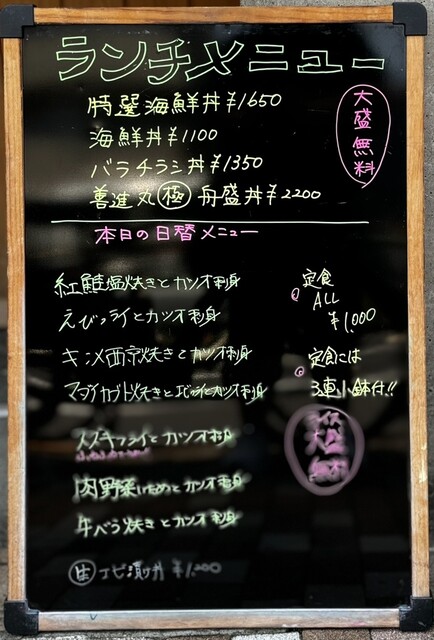 ランチメニュー
特選海鮮丼 ¥1650
海鮮丼 ¥1100
バラチラシ丼 ¥1350
善進丸 極 舟盛丼 ¥2200
大盛無料
本日の日替メニュー
紅鮭塩焼きとカツオ刺身
えびフライとカツオ刺身
キンメ西京焼きとカツオ刺身
マダイカブト焼きとエビフライとカツオ刺身
スズキフライとカツオ刺身
肉野菜いためとカツオ刺身
牛バラ焼きとカツオ刺身
生エビ漬け丼 ¥1,200
定食
ALL
¥1,000
定食には
3連小鉢付!!
ライス
大盛
無料